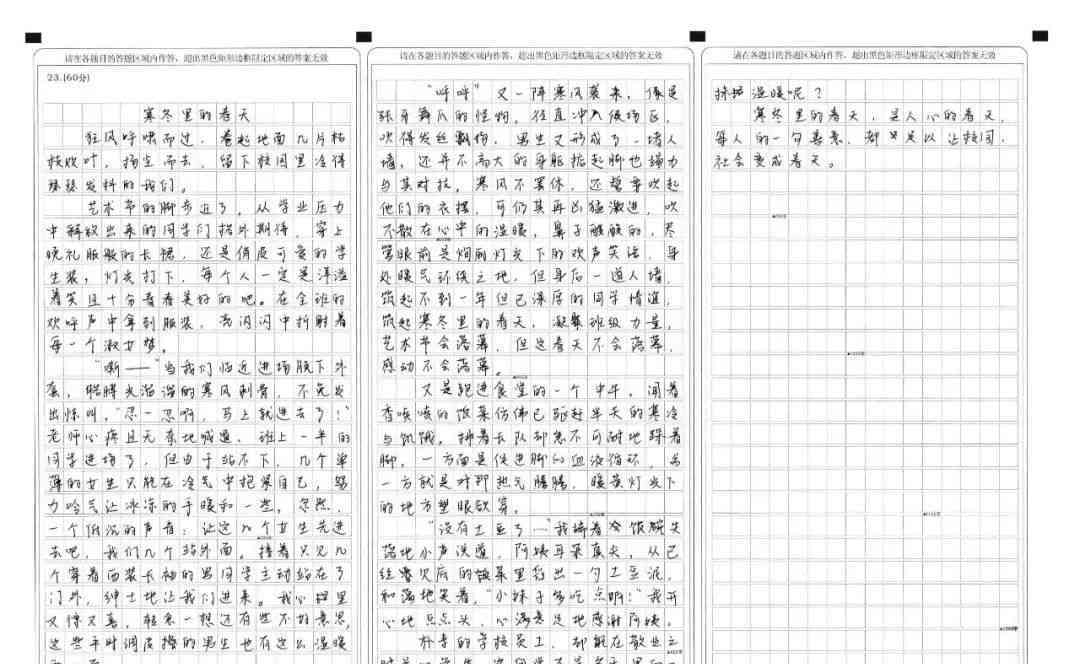 请在各题目的答题区域内作答，超出黑色矩形边框限定区域的答案无效
23.(60分)
寒冬里的春天
狂风呼啸而过，卷起地面几片枯
枝败叶，扬尘而去，留下校园里冷得
瑟瑟发抖的我们。
艺术节的脚步近了，从学业压力
中解放出来的同学们格外期待，穿上
晚礼服般的长裙，还是俏皮可爱的学
生装，灯光打下，每个人一定是洋溢
着笑且十分青春美好的吧。在全班的
欢呼声中拿到服装，亮闪闪中折射着
每一个淑女梦。
“嘶——”当我们临近进场脱下外
套，胳膊光溜溜的寒风刺骨，不免发
出惊叫，“忍一忍啊，马上就进去了！”
老师心疼且无奈地喊道，班上一半的
同学进场了，但由于站不下，几个单
薄的女生只能在冷气中抱紧自己，努
力哈气让冰冻的手暖和一些，忽然，
一个低沉的声音：让这几个女生先进
去吧，我们几个站外面。接着只见几
个穿着西装长袖的男同学主动站在了
门外，绅士地让我们进来。我心里
又惊又喜，转念一想还有些不好意思，
这些平时调皮捣的男生也有这么温暖
请在各题目的答题区域内作答，超出黑色矩形边框限定区域的答案无效
“呼呼”又一阵寒风袭来，像是
张牙舞爪的怪物，径直冲入候场区，
吹得发丝飘扬，男生又形成了一堵人
墙，还并不高大的身躯掂起脚也竭力
与其对抗，寒风不罢休，还誓要吹起
他们的衣摆，可仍其再凶猛激进，吹
不散在心中的温暖，鼻子酸酸的，尽
管眼前是绚丽灯光下的欢声笑语，身
处暖气环绕之地，但身后一道人墙，
筑起不到一年但已深厚的同学情谊，
筑起寒冬里的春天，凝聚班级力量，
艺术节会落幕，但这春天不会落幕，
感动不会落幕。
又是跑进食堂的一个中午，闻着
香喷喷的饭菜仿佛已驱赶半天的寒冷
与饥饿，排着长队却急不可耐地跺着
脚，一方面是促进脚的血液循环，另
一方就是对那热气腾腾，暖黄灯光下
的地方望眼欲穿。
“没有土豆了—”我端着冷饭碗失
落地小声说道，阿姨耳朵真尖，从已
经见底的饭菜里舀出一勺土豆泥，
和蔼地笑着，“小妹子多吃点啊！”我开
心地点点头，心满意足地感谢阿姨。
朴素的学校员工，却能在散业之
请在各题目的答题区域内作答，超出黑色矩形边框限定区域的答案无效
温暖呢？
寒冬里的春天，是人心的春天，
每人的一句善意，都足以让校园，
社会变成春天。